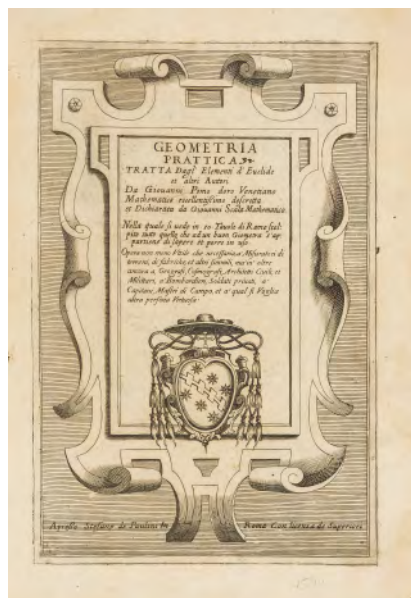 GEOMETRIA
PRATTICA
TRATTA Dagl Elementi d'Euclide
et altri Auttori
Da Giouanni Pomo doro Venetiano
Mathematico eccellentissimo descritta
et Dichiarata da Giouanni Scala Mathematico.
Nella quale si uede in 50 Tauole di Rame scol
pite tutto quello che ad un buon Geometra s'ap
partiene di sapere et porre in uso
Opera non meno Vtile che necessaria a Misuratori di
terreni, di fabriche, et altri simili, ma in oltre
ancora a Geografi, Cosmografi, Architetti Ciuili, et
Militari, a Bombardieri, Soldati priuati, a
Capitani, Mastri di Campo, et a qual si Voglia
altra persona Virtuosa
Apresso Stefano de Paulini In Roma Con licenza de Superiori